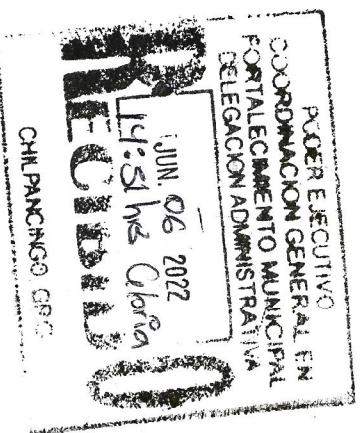 PODER EJECUTIVO
COORDINACION GENERAL EN
FORTALECIMIENTO MUNICIPAL
DELEGACION ADMINISTRATIVA
JUN. 06 2022
14:51 hrs Gloria
RECIBIDO
CHILPANCINGO GRO